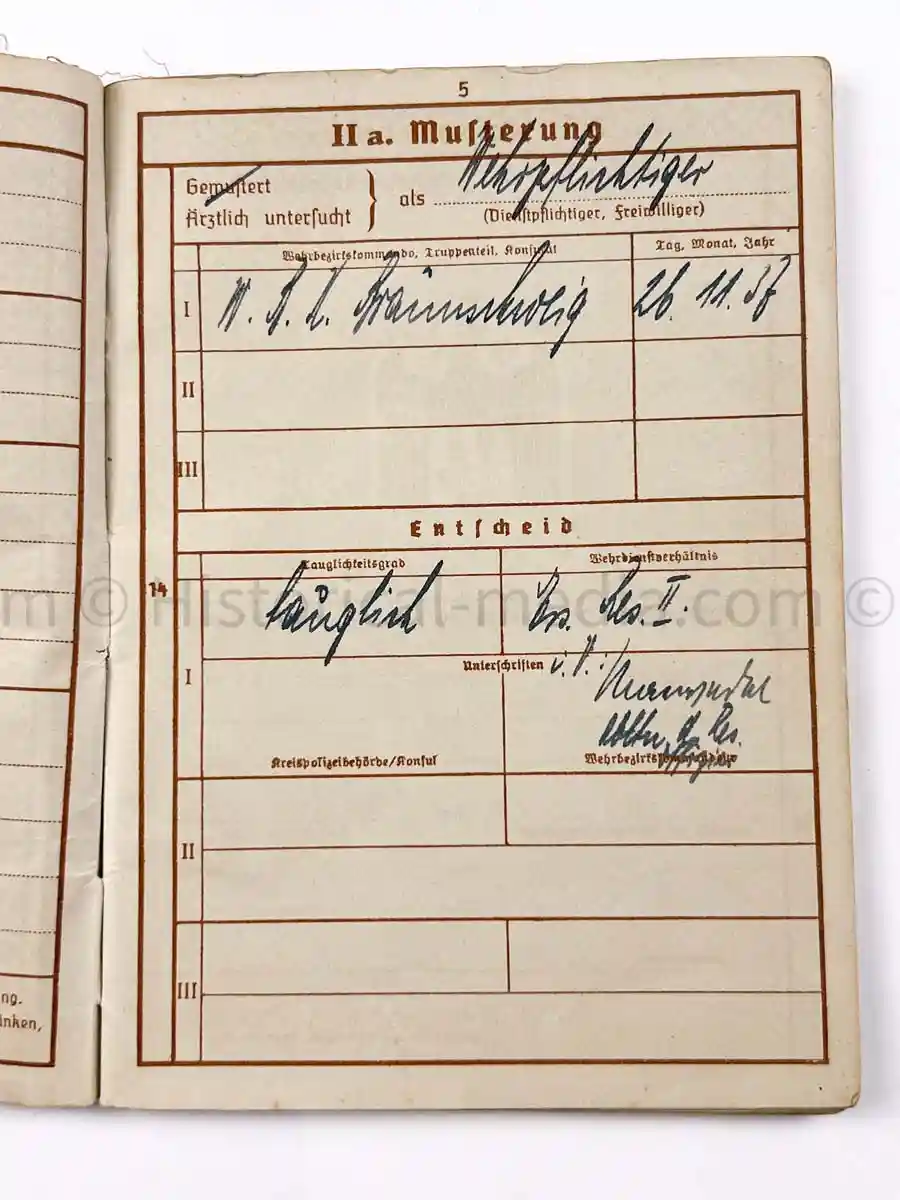 5
IIa. Musterung
Gemustert
Ärztlich untersucht } als Wehrpflichtiger
(Dienstpflichtiger, Freiwilliger)
Wehrbezirkskommando, Truppenteil, Konsulat Tag, Monat, Jahr
I W. B. K. Braunschweig 26. 11. 37
II
III
Entscheid
14
Tauglichkeitsgrad Wehrdienstverhältnis
tauglich Ers. Res. II.
I Unterschriften i. V.:
Kreispolizeibehörde/Konsul Wehrbezirkskommandeur
II
III
ng.
inken,
m © Historical-media.com ©